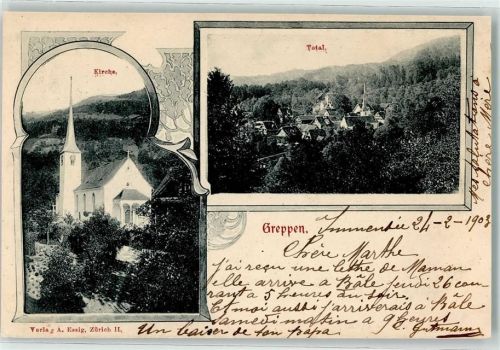 Kirche.
Total.
Greppen.
Immensée 24-2-1903
Chère Marthe
j'ai reçu une lettre de Maman
elle arrive à Bâle jeudi 26 cou
rant à 5 heures du soir.
Et moi aussi j'arriverais à Bâle
Samedi matin à 9 heures
Un baiser de ton papa
C. Gutmann
Mes salutations à
chère Mère
Verlag A. Essig, Zürich II.